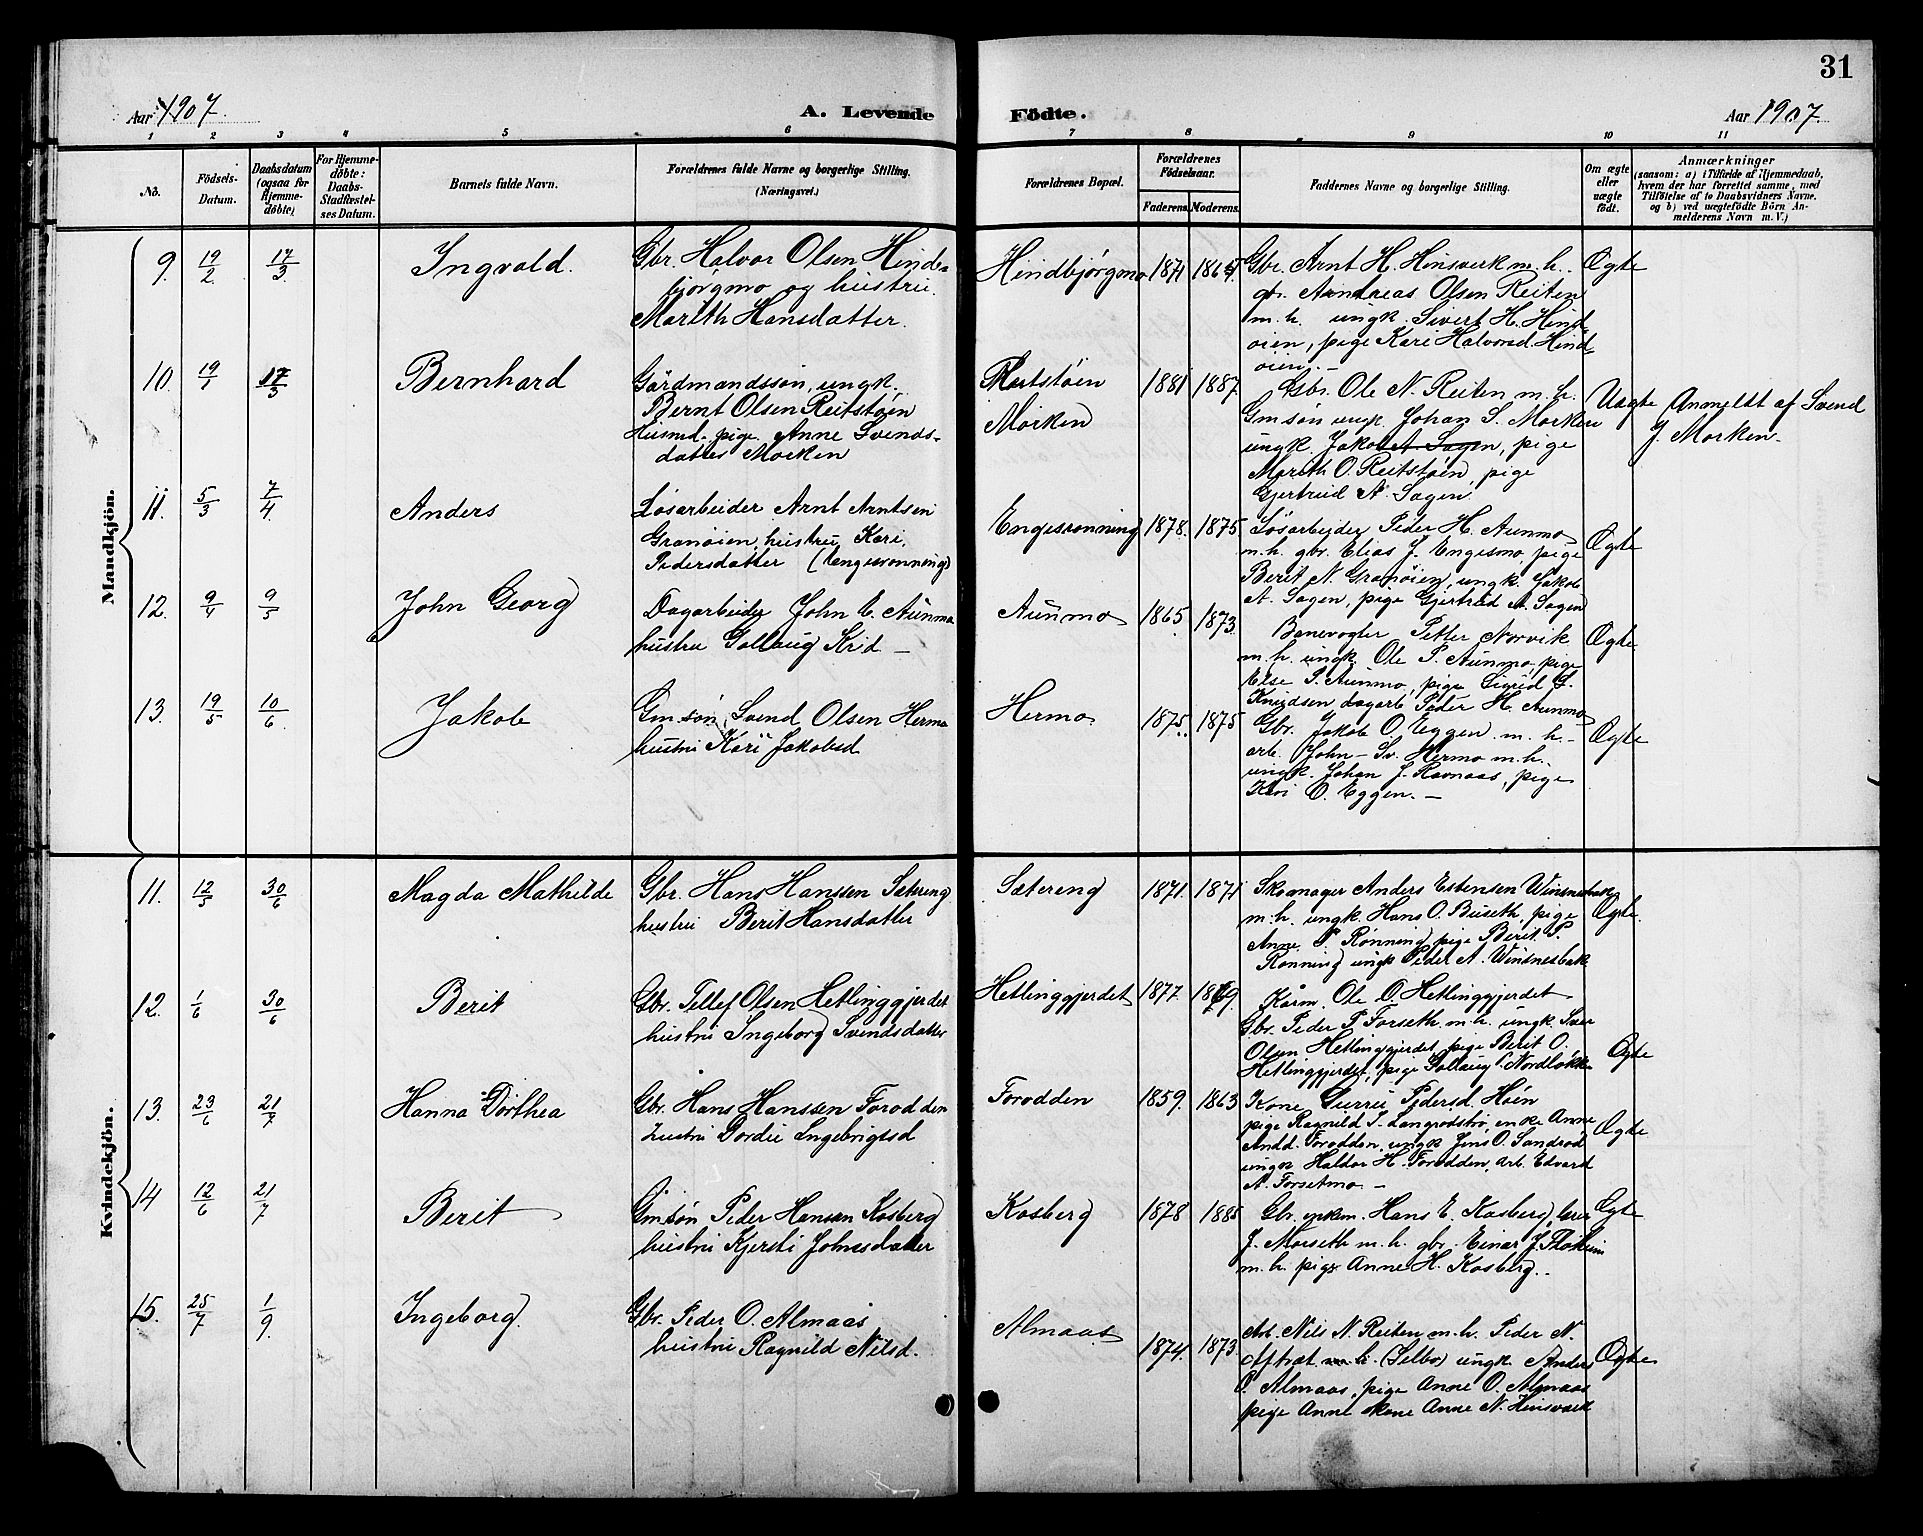 31
Aar 1907.
A. Levende Födte.
Aar 1907.
1 2 3 4 5 6 7 8 9 10 11
No.
Födsels-Datum.
Daabsdatum (ogsaa for Hjemme-döbte)
For Hjemme-döbte: Daabs-Stadfæstel-ses Datum.
Barnets fulde Navn.
Forældrenes fulde Navne og borgerlige Stilling. (Næringsvei.)
Forældrenes Bopæl.
Forældrenes Födselsaar.
Faderens. Moderens.
Faddernes Navne og borgerlige Stilling.
Om ægte eller uægte födt.
Anmærkninger
(saasom: a) i Tilfælde af Hjemmedaab, hvem der har forrettet samme, med Tilföielse af to Daabsvidners Navne, og b) ved uægtefödte Börn An-melderens Navn m. V.)
Mandkjön.
9. 19/2 17/3 Ingvald.
Gbr. Halvor Olsen Hind-
bjørgmo og hustru
Marith Hansdatter.
Hindbjørgmo 1871 1865
Gbr. Arnt H. Hinsverk m. h.
gbr. Andreas Olsen Reiten
m. h. ungk. Sivert H. Hind-
øien, pige Kari Halvorsd. Hind-
øien. –
Ægte
10. 19/1 17/3 Bernhard
Gårdmandssøn, ungk.
Bernt Olsen Reitstøen
Husmd. pige Anne Svends-
datter Morken
Reitstøen
Morken
1881 1887.
Gbr. Ole N. Reiten m. h.
Gmsøn ungk. Johan S. Morken
ungk. Jakob A. Sagen, pige
Marith O. Reitstøen, pige
Gjertrud A. Sagen
Uægte
Anmeldt af Svend
J. Morken.
11. 5/3 7/4 Anders
Løsarbeider Arnt Arntsen
Granøien, hustru Kari
Pedersdatter (Engesrønning)
Engesrønning 1878. 1875.
Løsarbeider Peder H. Aunmo
m. h. gbr. Elias J. Engesmo, pige
Berit N. Granøien, ungk. Jakob
A. Sagen, pige Gjertrud A. Sagen
Ægte
12. 9/4 9/5 John Georg
Dagarbeider John E. Aunmo
hustru Gollaug Kr.d –
Aunmo 1865. 1873.
Banevogter Petter Norvik
m. h. ungk. Ole P. Aunmo, pige
Else P. Aunmo, pige Sigrid S.
Knudsen dagarb. Peder H. Aunmo
Ægte
13. 19/5 10/6 Jakob
Gm.søn Svend Olsen Hermo
hustru Kari Jakobsd
Hermo 1875. 1875
Gbr. Jakob O. Eggen m. h. –
arb. John Sv. Hermo m. h.
ungk. Johan J. Ravnaas, pige
Kari O. Eggen. –
Ægte
Kvindekjön.
11. 12/5 30/6 Magda Mathilde
Gbr. Hans Hanssen Sætereng
hustru Berit Hansdatter
Sætereng 1871. 1871
Skomager Anders Estensen Winsnesbak
m. h. ungk. Hans O. Buseth, pige
Anne P. Rønning, pige Berit P.
Rønning ungk Peder A. Winsnesbak
Ægte.
12. 1/6 30/6 Berit
Gbr. Tellef Olsen Hetlinggjerdet
hustru Ingeborg Svendsdatter
Hetlinggjerdet 1877. 1869
Kårm. Ole O. Hetlinggjerdet
Gbr. Peder P. Forseth m. h. ungk. Iver
Olsen Hetlinggjerdet, pige Berit O.
Hetlinggjerdet, pige Gollaug Nordløkk
Ægte
13. 23/6 21/7 Hanna Dorthea
Gbr. Hans Hanssen Forodden
hustru Dordi Ingebrigtsd
Forodden 1859. 1863
Kone Gurru Pedersd. Høin
pige Ragnild S. Langrødstrø, enke Anne
Andd. Forodden, ungk Jens O. Sandrød
ungk Haldor H. Forodden, arb. Edvard
A. Forsetmo –
Ægte
14 12/6 21/7 Berit
Gmsøn Peder Hansen Kosberg
hustru Kjersti Johnsdatter
Kosberg 1878 1885
Gbr. enkm. Hans E. Kosberg, lærer
J. Morseth m. h. gbr. Einar J. Fløttum
m. h. pige Anne H. Kosberg.
Ægte
15. 25/7 1/9 Ingeborg.
Gbr. Peder O. Almaas
hustru Ragnild Nilsd.
Almaas 1874. 1873.
Arb. Nils N. Reiten m. h. Peder N.
Aftræt m. h. (Selbo) ungk Anders
O. Almaas, pige Anne O. Almaas
pige Anne kone Anne N. Hinsverk
Ægte